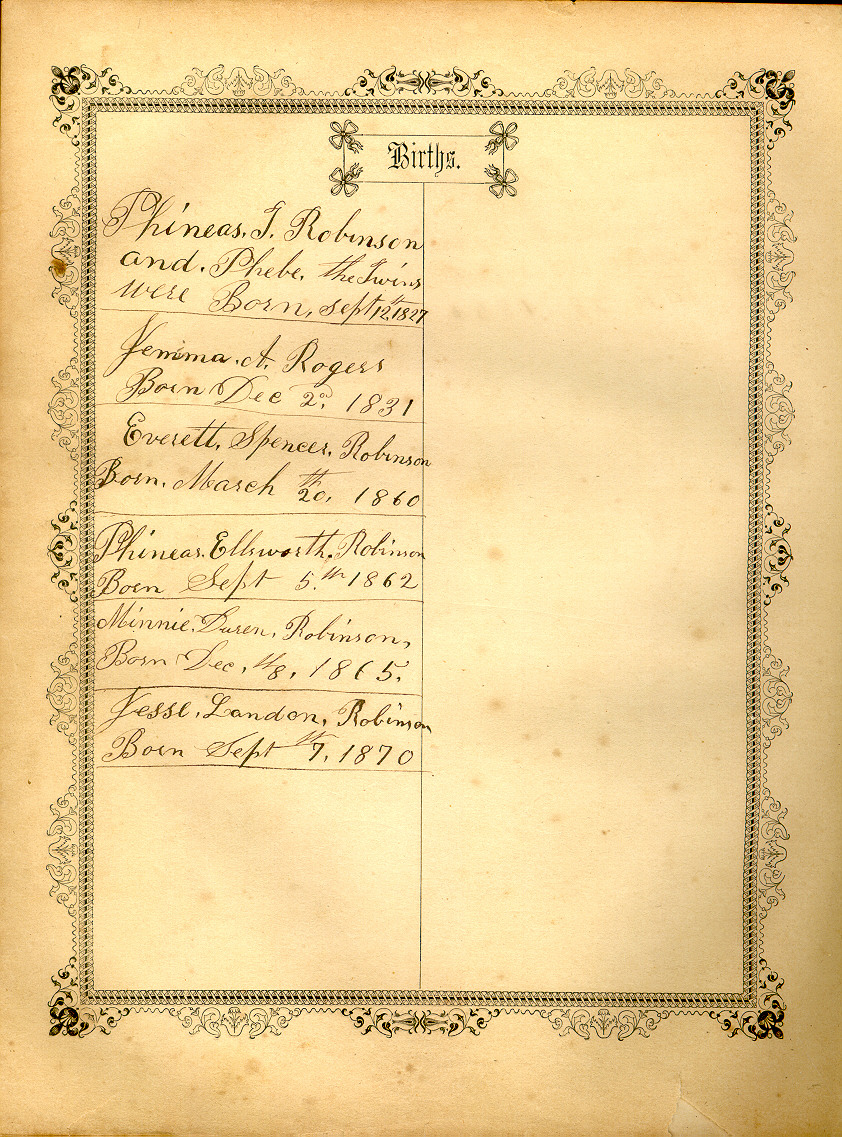 Births.
Phineas. J. Robinson
and. Phebe, the Twins
were Born, Sept 12th, 1827
Jemima. A. Rogers
Born Dec 2d, 1831
Everett, Spencer, Robinson
Born. March 20th, 1860
Phineas. Ellsworth. Robinson
Born Sept 5.th 1862
Minnie. Robinson,
Born Dec, 8th, 1865.
Jesse, Landon, Robinson
Born Sept 7th, 1870